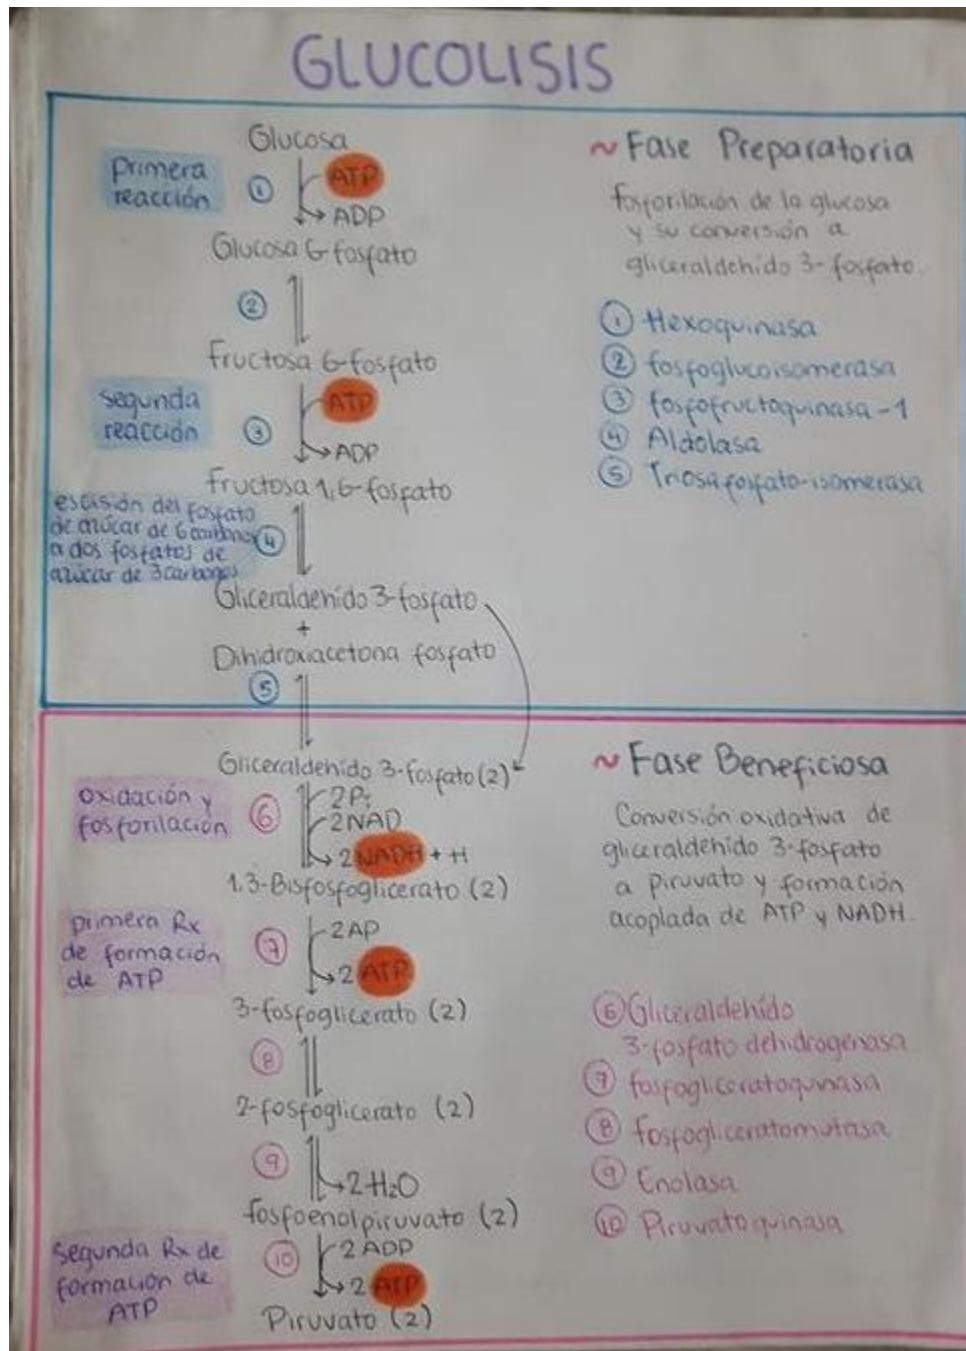 GLUCOLISIS
Glucosa
primera
reacción
①
ATP
ADP
Glucosa 6-fosfato
②
fructosa 6-fosfato
segunda
reacción
③
ATP
ADP
fructosa 1,6-fosfato
escisión del fosfato
de azúcar de 6 carbonos
a dos fosfatos de
azúcar de 3 carbonos
④
Gliceraldehído 3-fosfato
+
Dihidroxiacetona fosfato
⑤
~ Fase Preparatoria
fosforilación de la glucosa
y su conversión a
gliceraldehído 3-fosfato.
① Hexoquinasa
② fosfoglucoisomerasa
③ fosfofructoquinasa-1
④ Aldolasa
⑤ Triosafosfato-isomerasa
Gliceraldehído 3-fosfato (2)
oxidación y
fosforilación
⑥
2Pi
2NAD
2 NADH + H
1,3-Bisfosfoglicerato (2)
primera Rx
de formación
de ATP
⑦
2AP
2 ATP
3-fosfoglicerato (2)
⑧
2-fosfoglicerato (2)
⑨
2H₂O
fosfoenolpiruvato (2)
segunda Rx de
formación de
ATP
⑩
2 ADP
2 ATP
Piruvato (2)
~ Fase Beneficiosa
Conversión oxidativa de
gliceraldehído 3-fosfato
a piruvato y formación
acoplada de ATP y NADH.
⑥ Gliceraldehído
3-fosfato dehidrogenasa
⑦ fosfogliceratoquinasa
⑧ fosfogliceratomutasa
⑨ Enolasa
⑩ Piruvatoquinasa